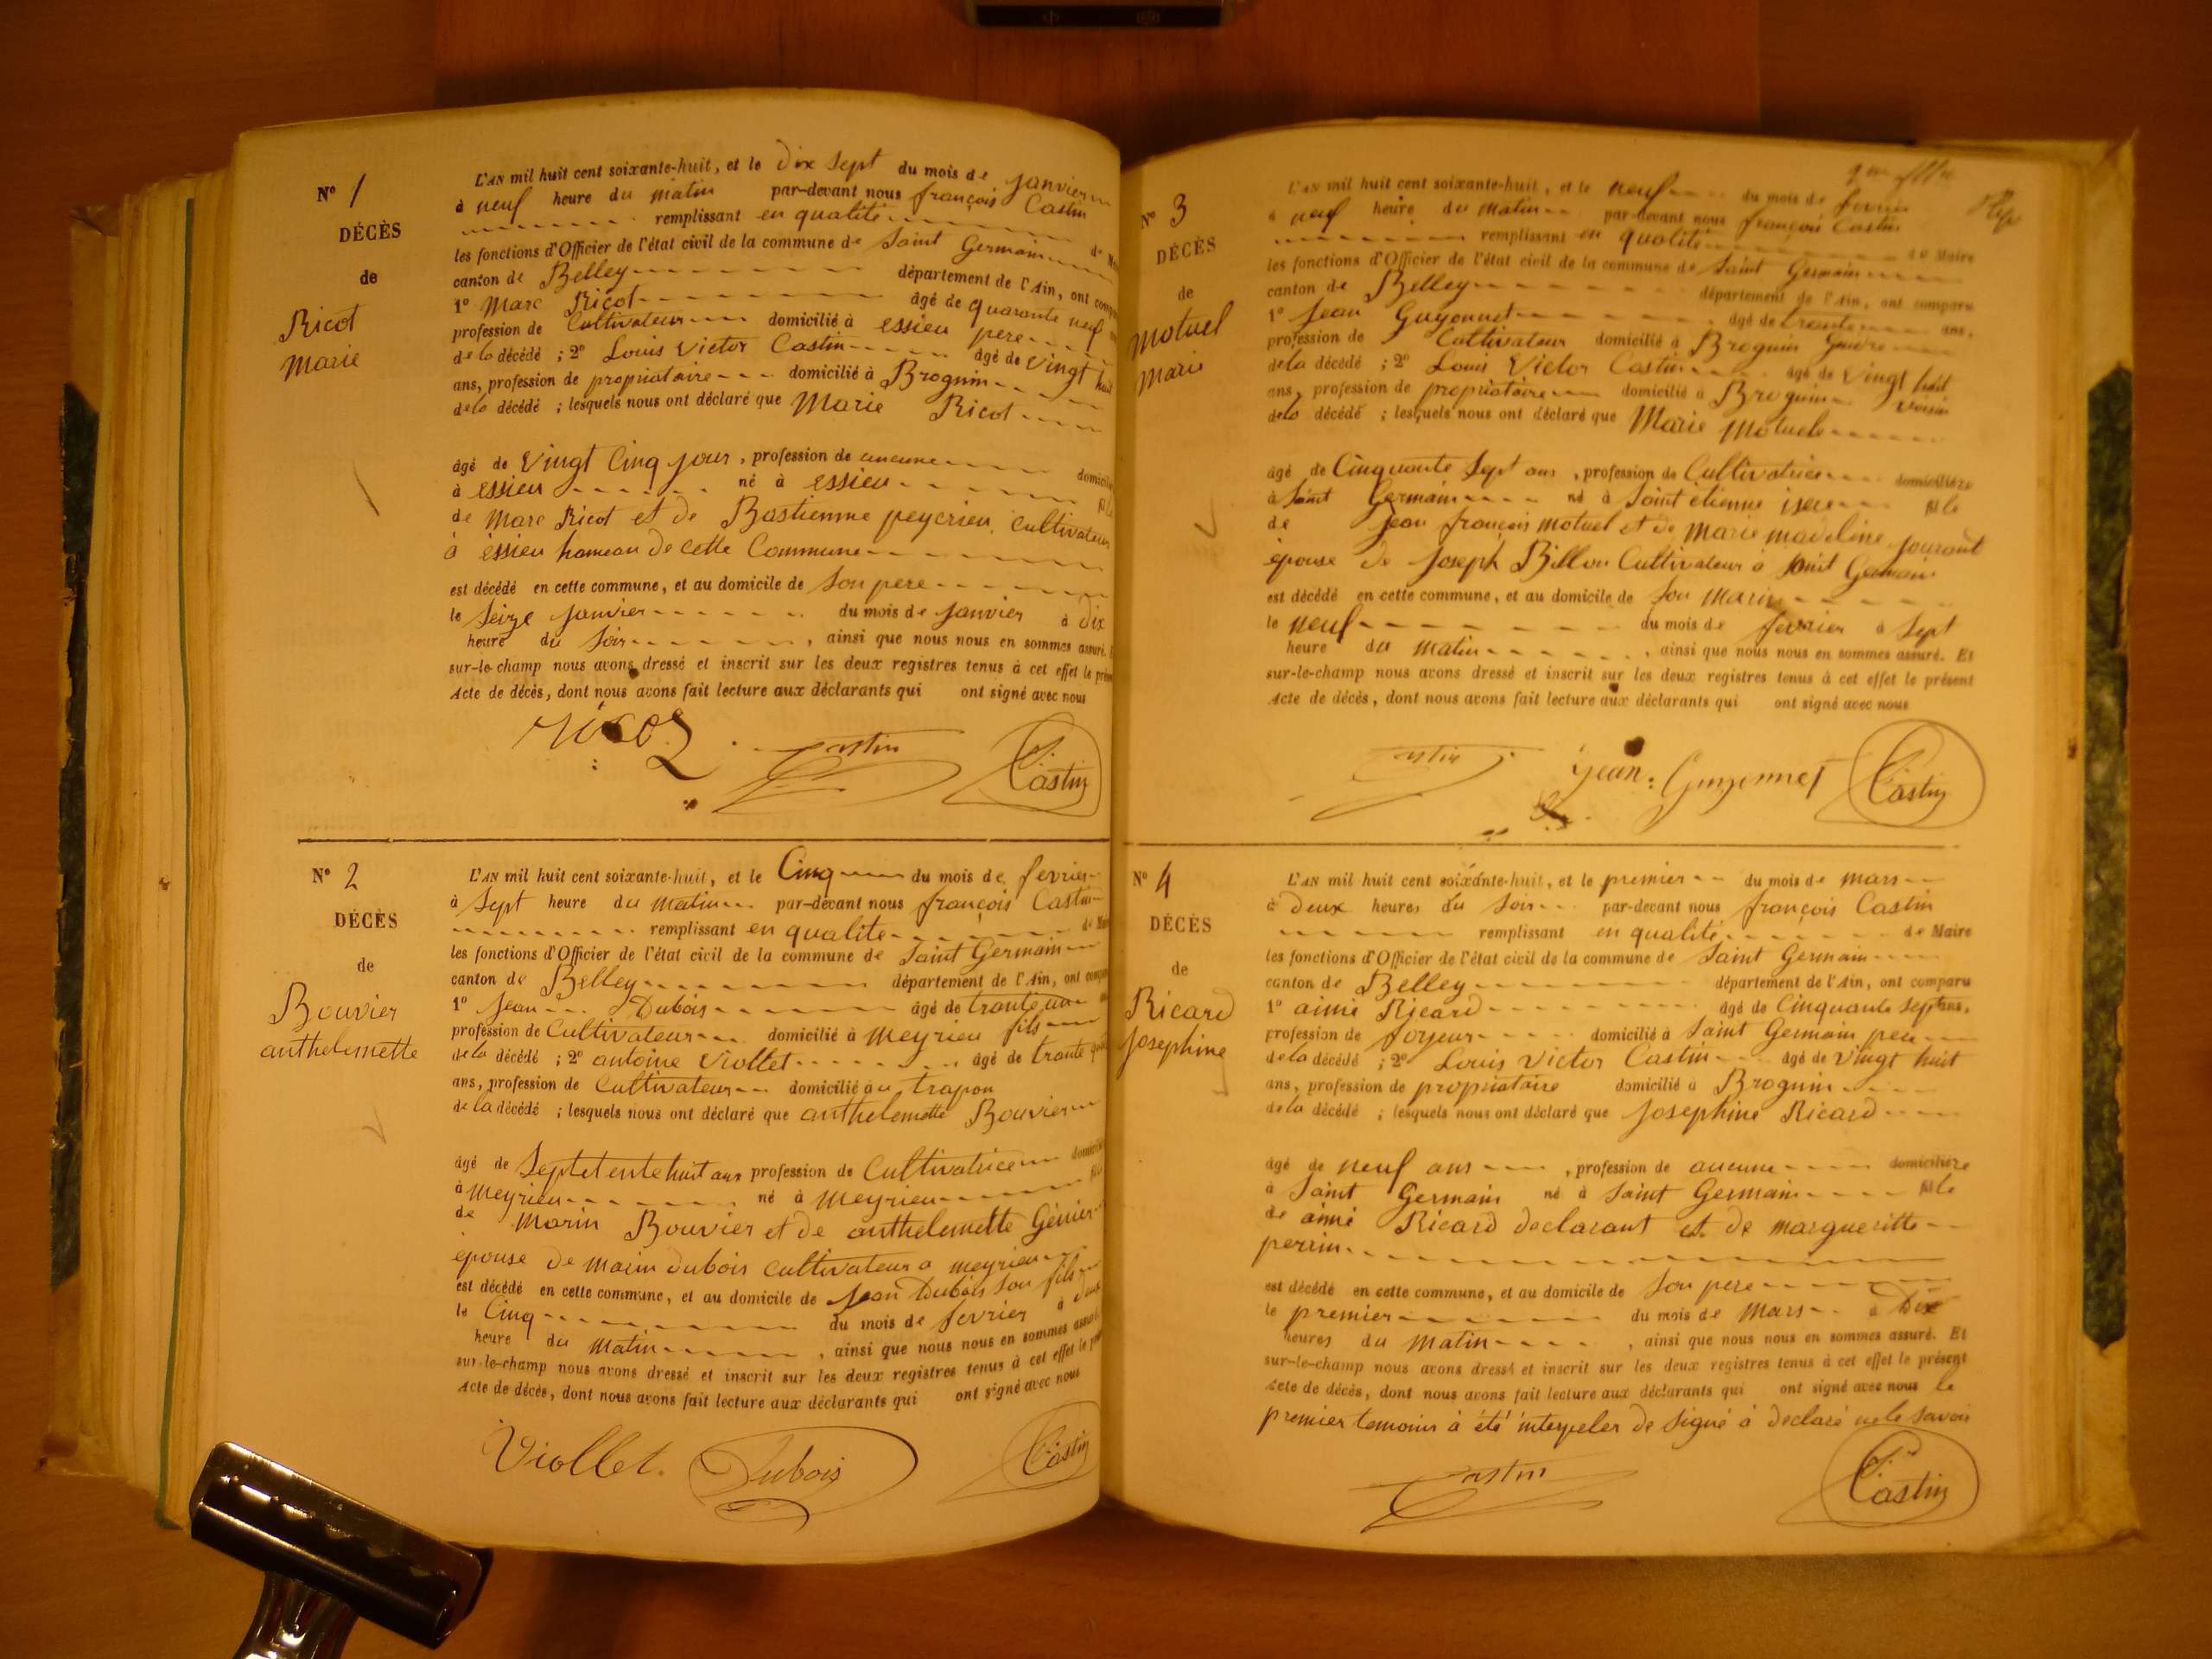 N° 1
DÉCÈS
de
Ricot
Marie
L'AN mil huit cent soixante-huit, et le Dix Sept du mois de Janvier
à neuf heure du matin par-devant nous françois Castin
remplissant en qualité de
les fonctions d'Officier de l'état civil de la commune de Saint Germain
canton de Belley département de l'Ain, ont
1° Marc Ricot âgé de quarante neuf
profession de Cultivateur domicilié à essieu pere
de la décédé ; 2° Louis Victor Castin âgé de vingt huit
ans, profession de propriataire domicilié à Brognin
de la décédé ; lesquels nous ont déclaré que Marie Ricot
âgé de Vingt Cinq jour, profession de aucune
à essieu né à essieu
de Marc Ricot et de Bastienne peycrieu Cultivateur
à éssieu hameau de cette Commune
est décédé en cette commune, et au domicile de Son pere
le Seize janvier du mois de janvier à dix
heure du Soir, ainsi que nous nous en sommes assuré.
sur-le-champ nous avons dressé et inscrit sur les deux registres tenus à cet effet le
Acte de décès, dont nous avons fait lecture aux déclarants qui ont signé avec nous
ricot Castin Castin
N° 2
DÉCÈS
de
Bouvier
anthelemette
L'AN mil huit cent soixante-huit, et le Cinq du mois de fevrier
à Sept heure du matin par-devant nous françois Castin
remplissant en qualité de
les fonctions d'Officier de l'état civil de la commune de Saint Germain
canton de Belley département de l'Ain, ont
1° Jean Dubois âgé de trante un
profession de Cultivateur domicilié à Meyrieu fils
de la décédé ; 2° antoine Viollet âgé de trante
ans, profession de Cultivateur domicilié à au trapon
de la décédé ; lesquels nous ont déclaré que anthelemette Bouvier
âgé de Septetentehuit ans profession de Cultivatrice
à Meyrieu né à Meyrieu
de Marin Bouvier et de anthelemette Génier
épouse de Marin Dubois Cultivateur a meyrieu
est décédé en cette commune, et au domicile de Jean Dubois Son fils
le Cinq du mois de fevrier à deux
heure du Matin, ainsi que nous nous en sommes
sur-le-champ nous avons dressé et inscrit sur les deux registres tenus à cet effet le
Acte de décès, dont nous avons fait lecture aux déclarants qui ont signé avec nous
Viollet. Dubois Castin
N° 3
DÉCÈS
de
Motuel
Marie
L'AN mil huit cent soixante-huit, et le neuf du mois de fevrier
à neuf heure du matin par-devant nous françois Castin
remplissant en qualité de Maire
les fonctions d'Officier de l'état civil de la commune de Saint Germain
canton de Belley département de l'Ain, ont comparu
1° Jean Guyonnet âgé de trante ans,
profession de Cultivateur domicilié à Brognin
de la décédé ; 2° Louis Victor Castin âgé de Vingt huit
ans, profession de propriataire domicilié à Brognin voisin
de la décédé ; lesquels nous ont déclaré que Marie Motuel
âgé de Cinquante Sept ans, profession de Cultivatrice domiciliée
à Saint Germain né à Saint etienne isere fille
de Jean françois motuel et de Marie madeline
épouse de Joseph Billon Cultivateur à Saint Germain
est décédé en cette commune, et au domicile de Son Marie
le neuf du mois de fevrier à Sept
heure du Matin, ainsi que nous nous en sommes assuré. Et
sur-le-champ nous avons dressé et inscrit sur les deux registres tenus à cet effet le présent
Acte de décès, dont nous avons fait lecture aux déclarants qui ont signé avec nous
Castin Jean: Guyonnet Castin
N° 4
DÉCÈS
de
Ricard
Josephine
L'AN mil huit cent soixante-huit, et le premier du mois de Mars
à Deux heures du Soir par-devant nous françois Castin
remplissant en qualité de Maire
les fonctions d'Officier de l'état civil de la commune de Saint Germain
canton de Belley département de l'Ain, ont comparu
1° aimé Ricard âgé de Cinquante Sept ans,
profession de foyeur domicilié à Saint Germain
de la décédé ; 2° Louis Victor Castin âgé de Vingt huit
ans, profession de propriataire domicilié à Brognin
de la décédé ; lesquels nous ont déclaré que Josephine Ricard
âgé de neuf ans, profession de aucune domiciliée
à Saint Germain né à Saint Germain fille
de aimé Ricard declarant et de margueritte
perrin
est décédé en cette commune, et au domicile de Son pere
le premier du mois de Mars à Dix
heures du Matin, ainsi que nous nous en sommes assuré. Et
sur-le-champ nous avons dressé et inscrit sur les deux registres tenus à cet effet le présent
Acte de décès, dont nous avons fait lecture aux déclarants qui ont signé avec nous le
premier temoins à été interpeler de Signé à declaré ne le Savoir
Castin Castin